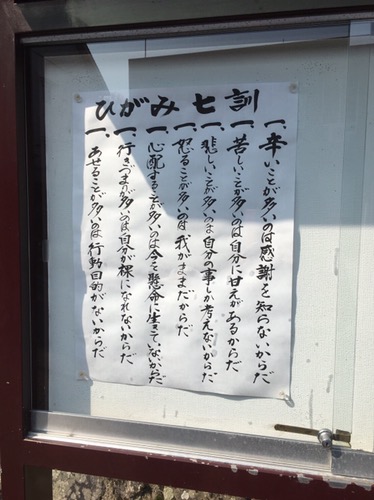 ひがみ七訓
一、辛いことが多いのは感謝を知らないからだ
一、苦しいことが多いのは自分に甘えがあるからだ
一、悲しいことが多いのは自分の事しか考えないからだ
一、怒ることが多いのは我がままだからだ
一、心配することが多いのは今を懸命に生きていないからだ
一、行きづまりが多いのは自分が裸になれないからだ
一、あせることが多いのは行動目的がないからだ